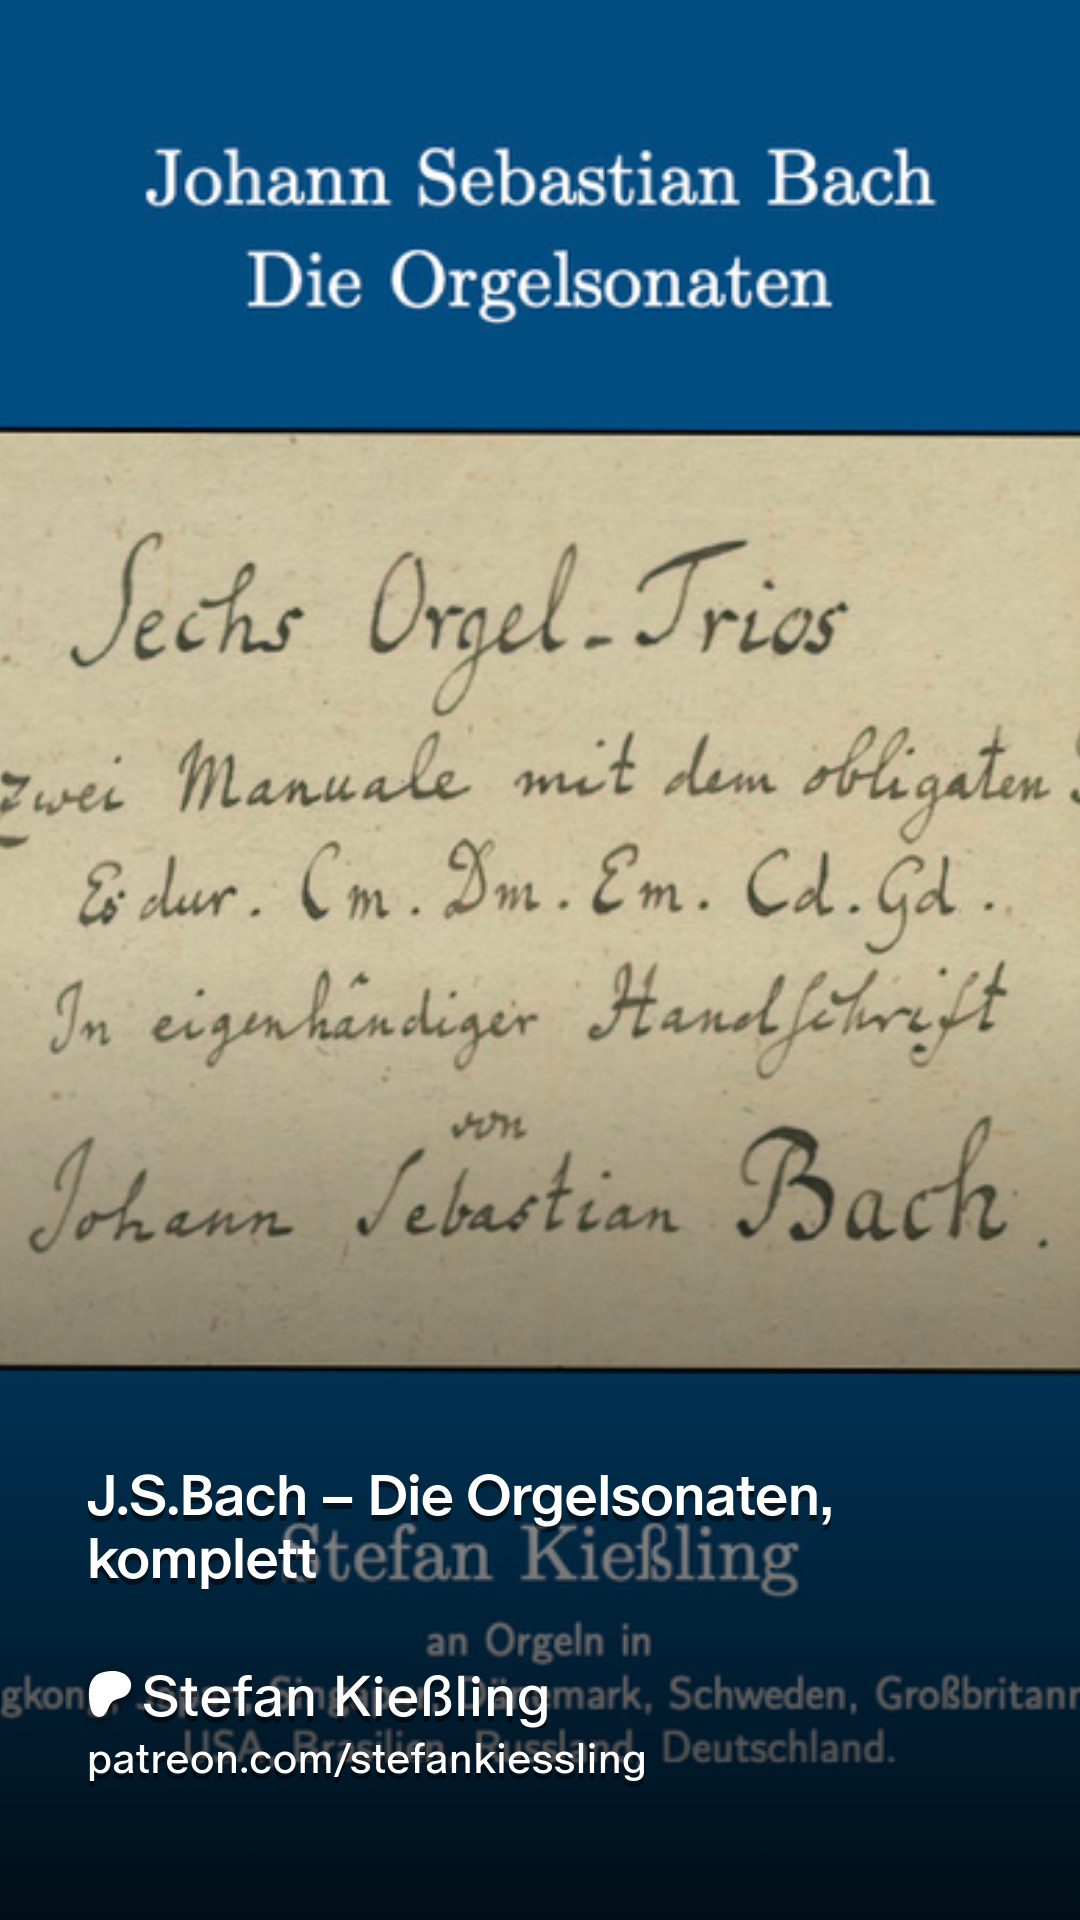 Johann Sebastian Bach
Die Orgelsonaten
Sechs Orgel-Trios
zwei Manuale mit dem obligaten
Es dur. Cm. Dm. Em. Cd. Gd.
In eigenhändiger Handschrift
von
Johann Sebastian Bach.
J.S.Bach – Die Orgelsonaten,
komplett
Stefan Kießling
an Orgeln in
Dänemark, Schweden,
USA, Brasilien, Russland, Deutschland.
Stefan Kießling
patreon.com/stefankiessling